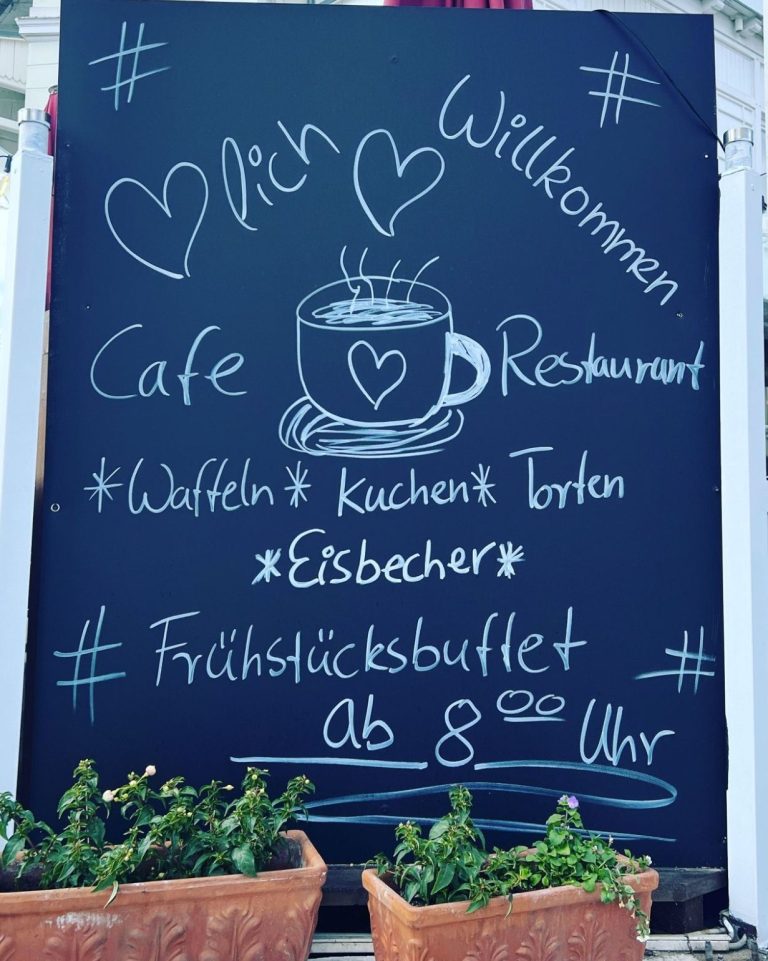 # #
♡lich ♡ Willkommen
Cafe Restaurant
*Waffeln* Kuchen* Torten
*Eisbecher*
# Frühstücksbuffet #
ab 8⁰⁰ Uhr